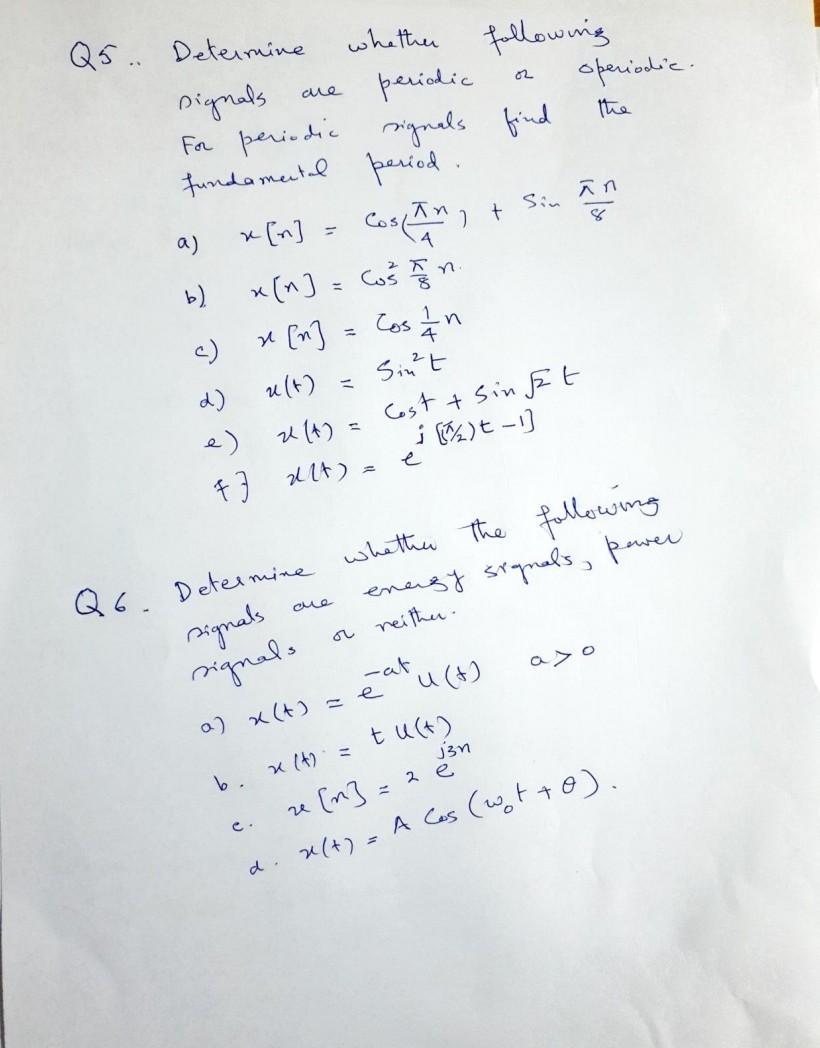 Q5.. Determine whether following
signals are periodic or operiodic.
For periodic signals find the
fundamental period.
a) x[n] = Cos(πn/4) + Sin πn/8
b) x[n] = Cos² π/8 n.
c) x[n] = Cos 1/4 n
d) x(t) = Sin²t
e) x(t) = Cost + Sin √2 t
f} x(t) = e^j[(π/2)t-1]
Q6. Determine whether the following
signals are energy signals, power
signals or neither.
a) x(t) = e^-at u(t) a>0
b. x(t) = t u(t)
c. x[n] = 2 e^j3n
d. x(t) = A Cos (ω₀t + θ).